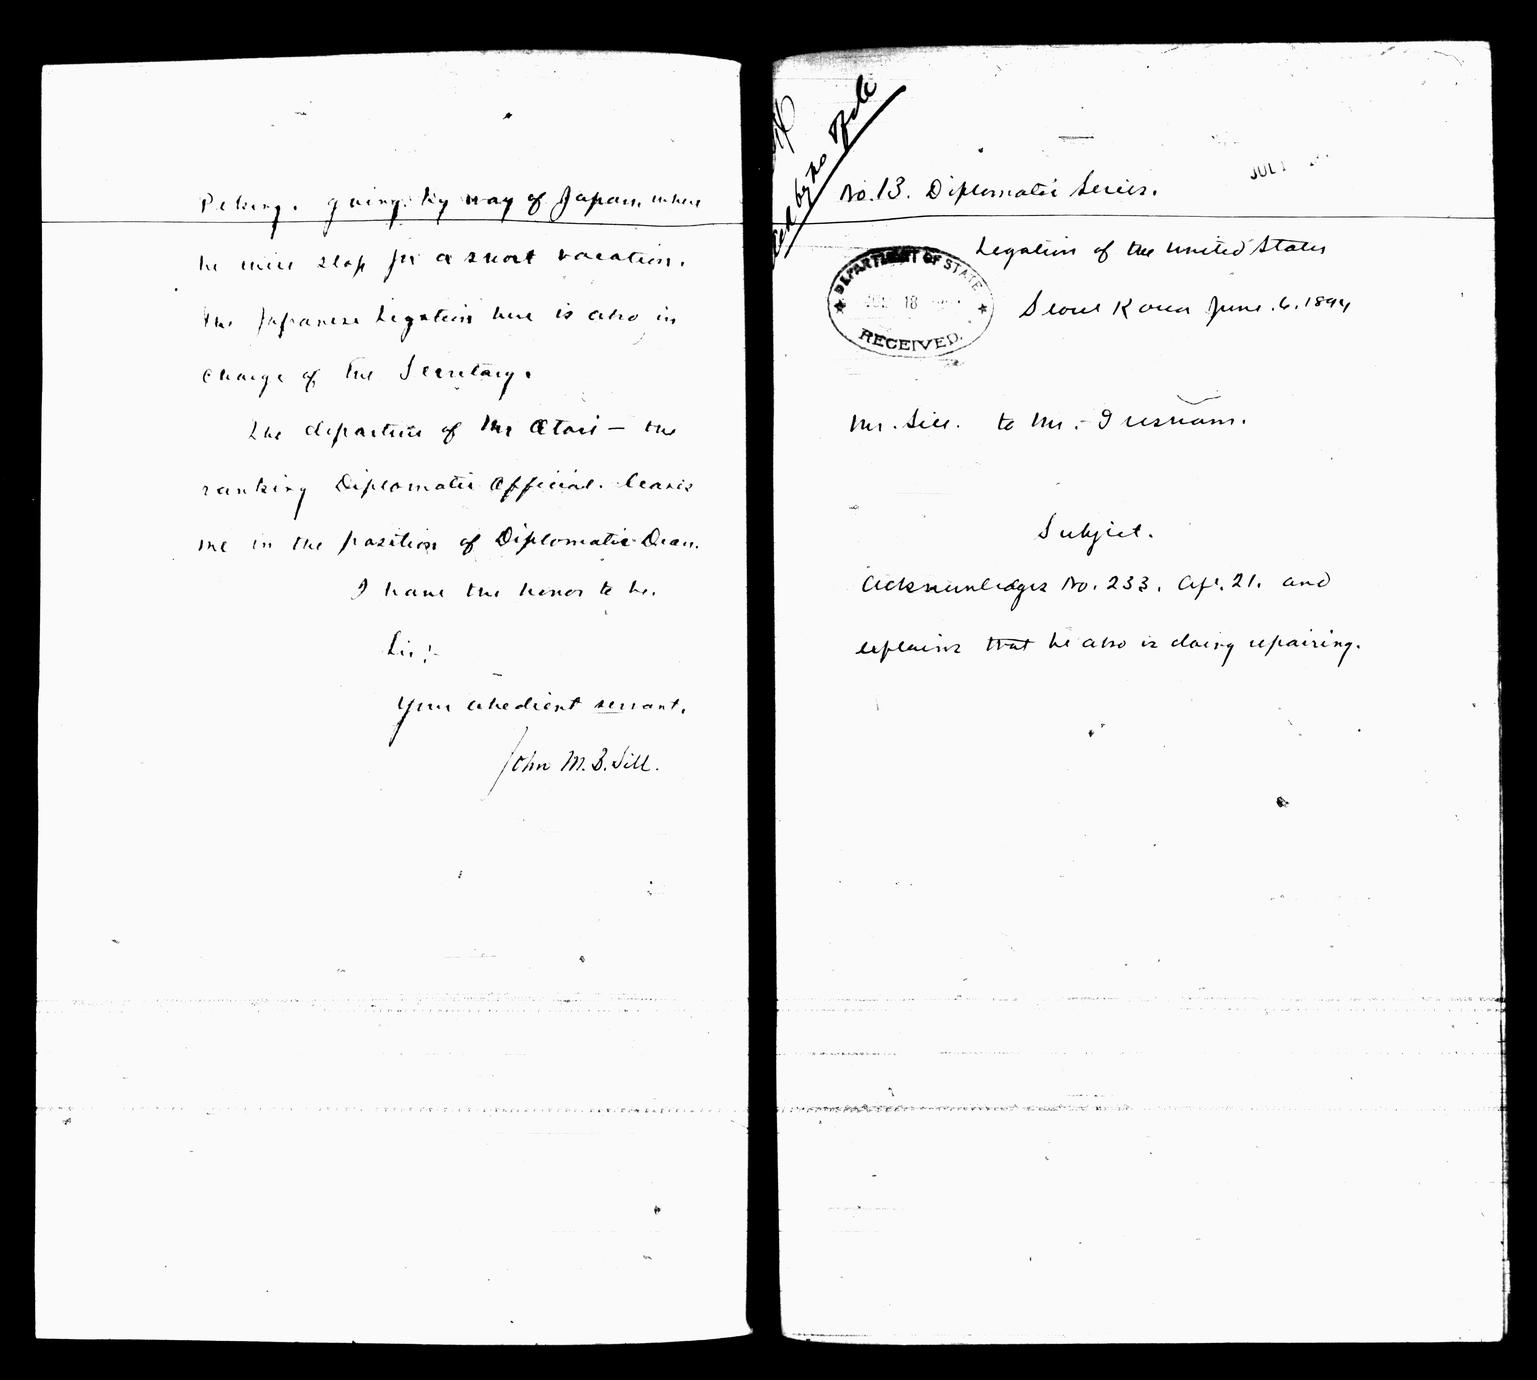 Peking. going by way of Japan, where
he will stop for a short vacation.
The Japanese Legation here is also in
charge of the Secretary.
The departure of Mr Otori — the
ranking Diplomatic Official. leaves
me in the position of Diplomatic Dean.
I have the honor to be.
Sir:-
Your obedient servant,
John M. B. Sill.
by the
No. 13. Diplomatic Series.
JUL 1
Legation of the United States
DEPARTMENT OF STATE
18
RECEIVED.
Seoul Korea June. 6. 1894
Mr. Sill. to Mr.- Gresham.
Subject.
Acknowledges No. 233. Apl. 21. and
explains that he also is doing repairing.